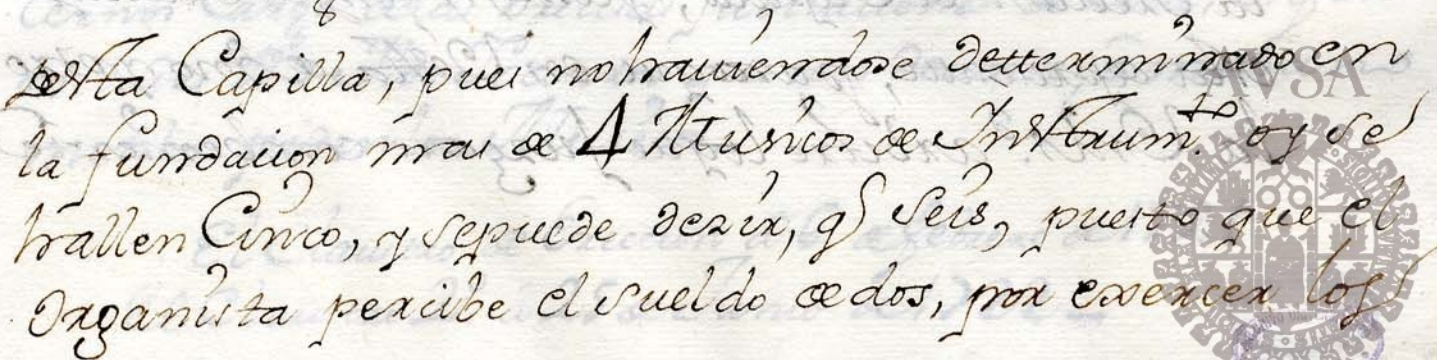 desta Capilla, pues no hauiendose dettexminado en
la fundacion mas de 4 Musicos de Instrum.to oy se
hallen Cinco, y sepuede dezix, q seis, puesto que el
oxganista pexcibe el sueldo de dos, pox exexcex los
AVSA